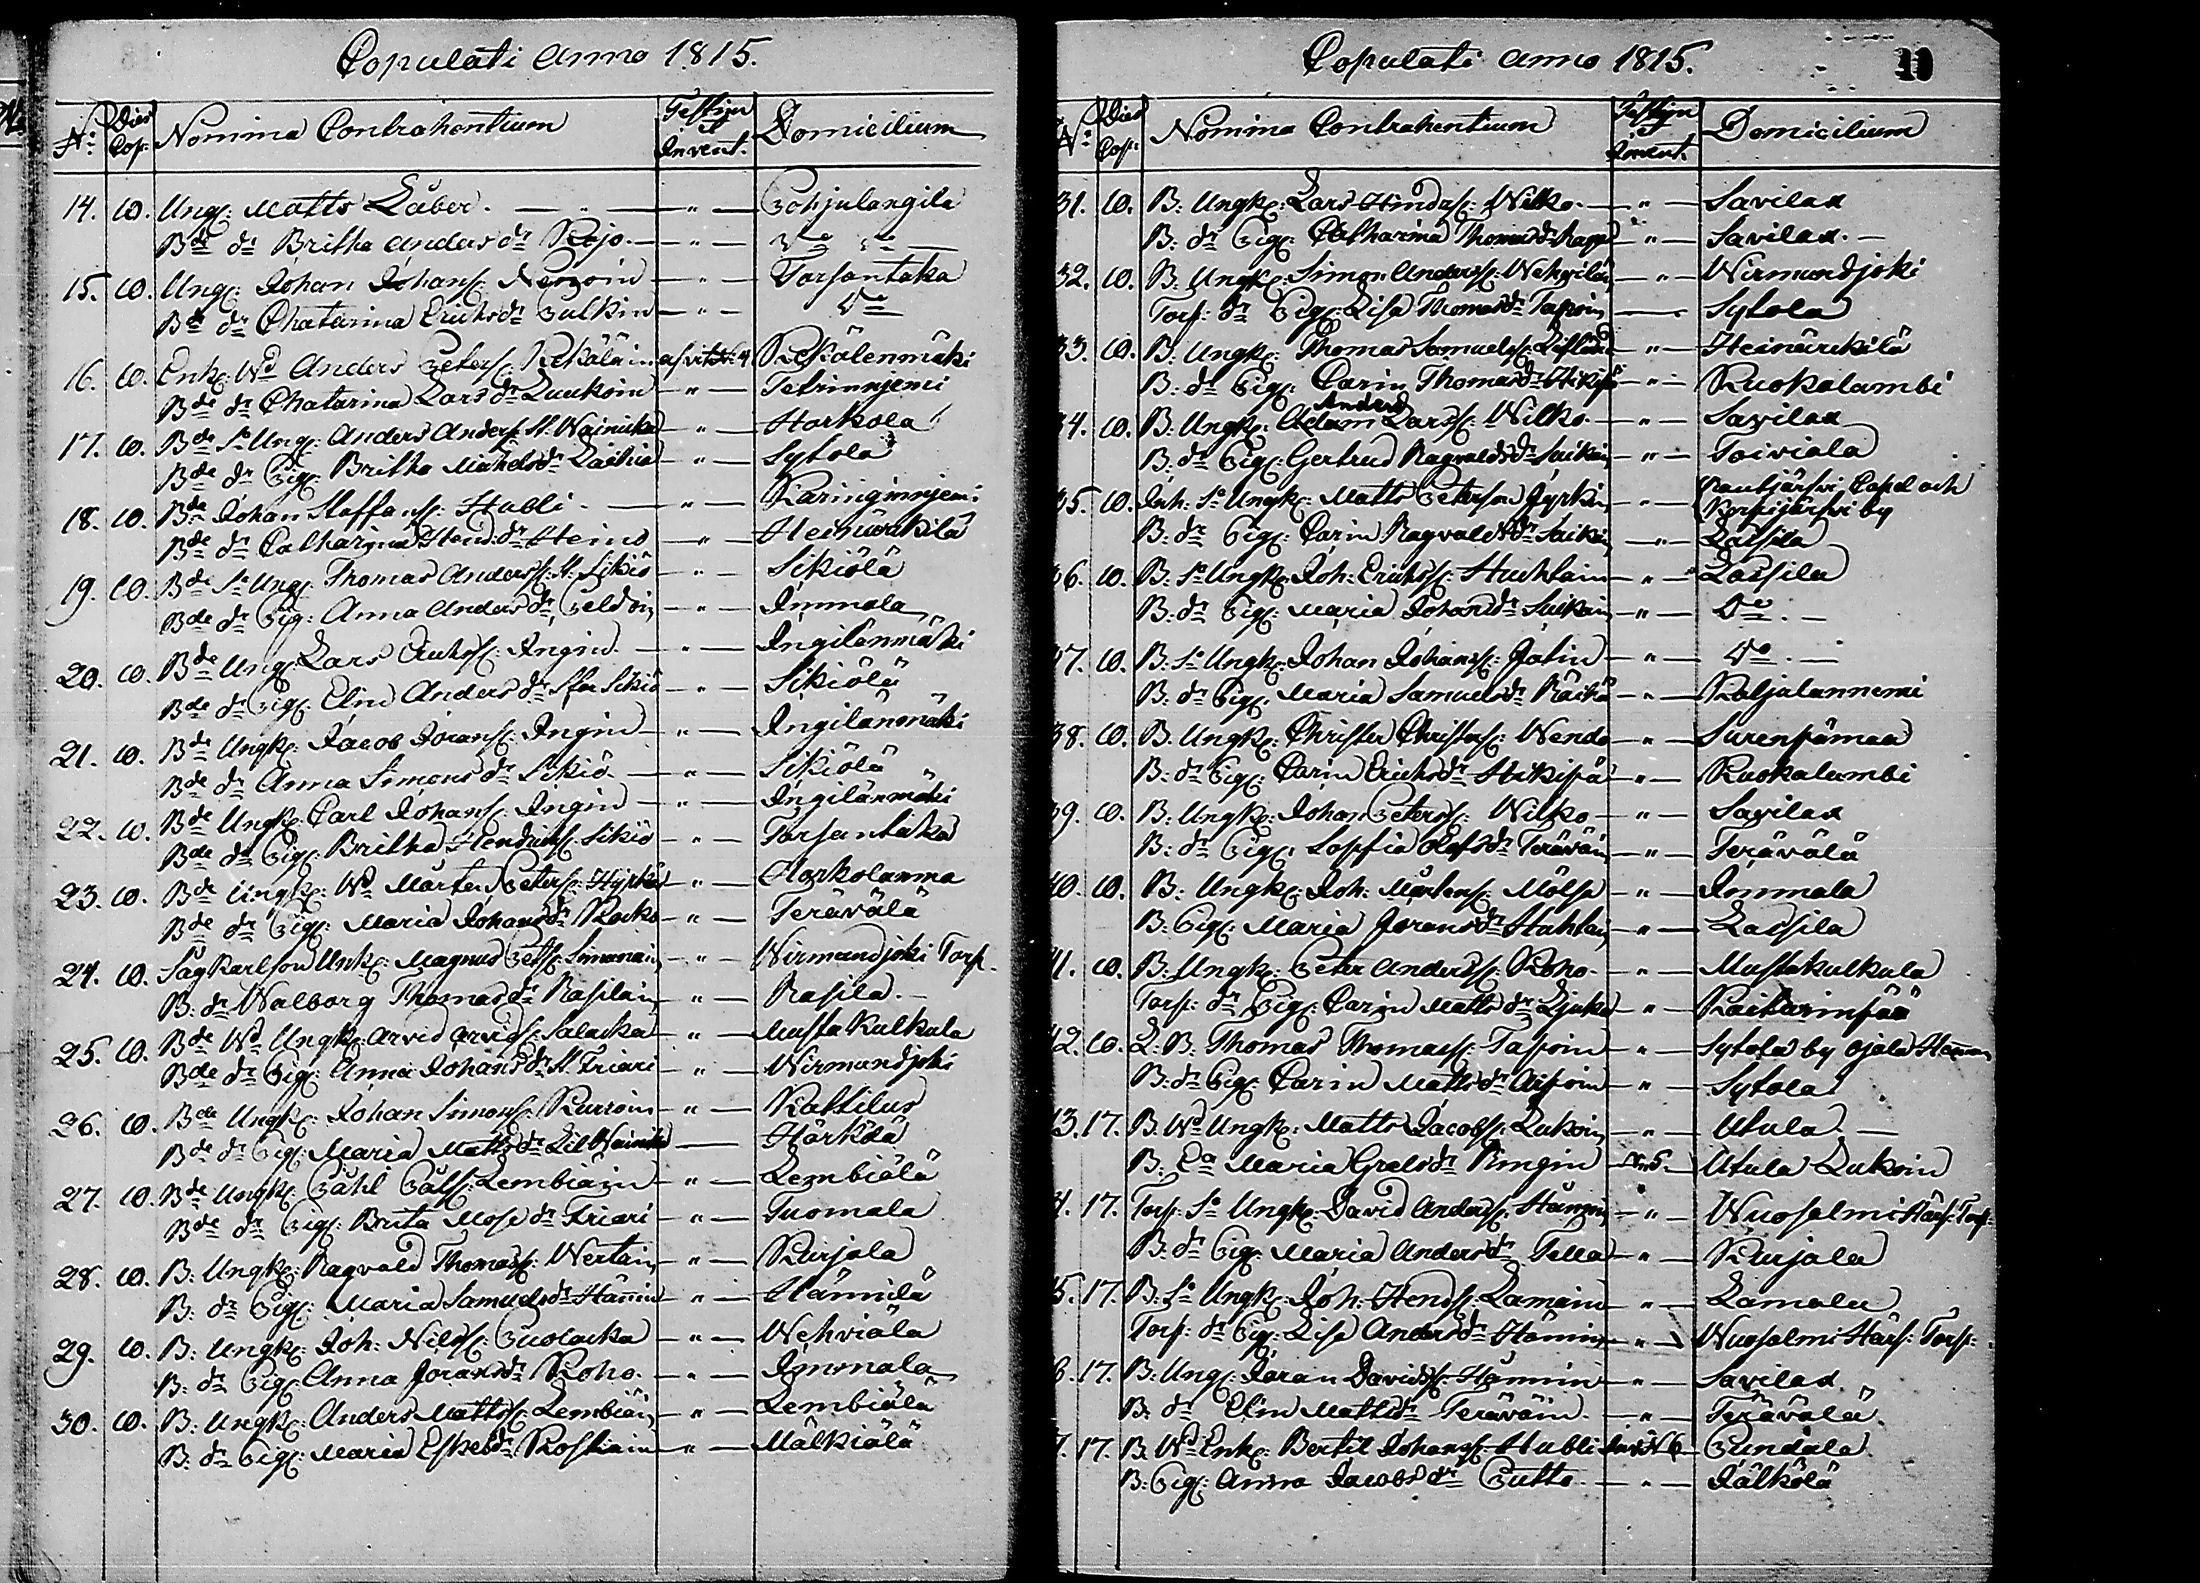 Copulati Anno 1815.
No: Dies Cop: Nomina Contrahentium Testim et Invent. Domicilium
14. 10. Ungk: Matts Läber. — " — Pohjalangila
Bde dr Britha Anders dr Rojo — " — Do Do —
15. 10. Ungk: Johan Johanss: — " — Torsantaka
Bde dr Chatarina Erichs dr Pulkin — " — Do
16. 10. Enk: Wd Anders Peterss: Rekäläin No 4 Rekälenmäki
Bde dr Chatarina Lars dr Luukoin — " — Tetrinnjemi
17. 10. Bde So Ung: Anders Anders: N. Wainicka " — Harkola
Bde dr Pig: Britha Michels dr " — Sytola
18. 10. Bde Johan Staffanss: Hubli — " — Karinginnjemi
Bde dr Catharina Hend: dr Heino — " — Heinürakilä
19. 10. Bde So Ung: Thomas Anderss: N. Sikiö — " — Sikiölä
Bde dr Pig: Anna Anders dr Peldoin — " — Immola
20. 10. Bde Ung: Lars Erichss: Ingin — " — Ingilänmäki
Bde dr Pig: Elin Anders dr Sikiö — " — Sikiölä
21. 10. Bde Ungk: Jacob Joranss: Ingin — " — Ingilänmäki
Bde dr Anna Simons dr Sikiö — " — Sikiölä
22. 10. Bde Ungk: Carl Johanss: Ingin — " — Ingilänmäki
Bde dr Pig: Britha Hendrichss: Sikiö — " — Torsantaka
23. 10. Bde Ungk: Wd Mårten Peterss: Hyrkäs — " — Harkolanma
Bde dr Pig: Maria Johans dr Rocko — " — Terävälä
24. 10. Sag Karlson Unk: Magnus Petss: Simanain — " — Wirmundjoki Torp.
B. dr Walborg Thomas dr Rasilain — " — Rasila. —
25. 10. Bde Wd Ungk: Arvid Arvidss: Salacka — " — Musta Kulkula
Bde dr Pig: Anna Johans dr N. Friari — " — Wirmundjoki
26. 10. Bde Ungk: Johan Simonss: Kurroin — " — Kattilus
Bde dr Pig: Maria Matts dr Lill Wainicka — Härkölä
27. 10. Bde Ungk: Påhl Pålss: Lembiäin — " — Lembiälä
Bde dr Pig: Brita Mose dr Friari — " — Tuomala
28. 10. B: Ungk: Ragvald Thomass: Wertain — " — Kurjala
B: dr Pig: Maria Samuels dr Hännin — " — Hännilä
29. 10. B: Ungk: Joh: Nilss: Puolacka — " — Wehviälä
B: dr Pig: Anna Jorans dr Roho. — " — Immola
30. 10. B: Ungk: Anders Mattss: Lembiäin — " — Lembiälä
B: dr Pig: Maria Eskels dr Roskiain — " — Mälkiälä
Copulati anno 1815. 10
No: Dies Cop: Nomina Contrahentium Testim et Invent. Domicilium
31. 10. B: Ungk: Lars Hindss: Wilko — " — Savilax
B: dr Pig: Catharina Thomas dr — " — Savilax. —
32. 10. B: Ungk: Simon Anderss: Wehviläin — " — Wirmundjoki
Torp: dr Pig: Lisa Thomas dr Tapoin — Sytola
33. 10. B: Ungk: Thomas Samuelss: — " — Heinürikilä
B: dr Pig: Carin Thomas dr Hikipä — " — Ruokolambi
Anders
34. 10. B: Ungk: Adam Larss: Wilko — " — Savilax
B: dr Pig: Gertrud Ragvalds dr Suikain — " — Toiviala
35. 10. Inh: So Ungk: Matts Peterson Jyrkin — " — Rautjärfvi Capel och
Korpijärfvi by
B: dr Pig: Carin Ragvalds dr Suikain — " — Lassila
36. 10. B: So Ungk: Joh: Erichss: Huchtain — " — Lassila
B: dr Pig: Maria Johans dr Suikain — " — Do. —
37. 10. B: So Ungk: Johan Johanss: — " — Do. —
B: dr Pig: Maria Samuels dr Räikä — " — Koljolannemi
38. 10. B: Ungk: Christer Christerss: Wendo " — Surenpämaa
B: dr Pig: Carin Erichs dr Hikipä " — Ruokolambi
39. 10. B: Ungk: Johan Peterss: Wilko — " — Savilax
B: dr Pig: Sophia Olofs dr Teräväin — " — Terävälä
40. 10. B: Ungk: Joh: Mårtenss: Mölsä — " — Immola
B. Pig: Maria Jörans dr Huhtain " — Lassila
41. 10. B: Ungk: Peter Anderss: Roho — " — Mustakulkula
Torp: dr Pig: Carin Matts dr " — Raitarinpää
42. 10. L: B: Thomas Thomass: Tapoin — " — Sytola by ojala Hemman
B: dr Pig: Carin Matts dr — " — Sytola
43. 17. B. Wd Ungk: Matts Jacobss: Lukoin — " — Utula. —
B: Ea Maria Grels dr Ringin No 5. Utula Lukoin
4. 17. Torp: So Ungk: David Anderss: Hännin — " — Wuosalmi Härs: Torp:
B: dr Pig: Maria Anders dr Tella — " — Kurjala
5. 17. B: So Ungk: Joh: Hendss: Lamain — " — Lamala
Torp: dr Pig: Lisa Anders dr Hännin — " — Wuosalmi Härs: Torp:
6. 17. B: Ung: Jöran Davidss: Hännin — " — Savilax
B: dr Elin Matts dr Teräväin. — " — Terävälä.
7. 17. B. Wd Enk: Bertil Johanss: Hubli No 6. — Pundala
B: Pig: Anna Jacobs dr Putto. — " — Jälkölä